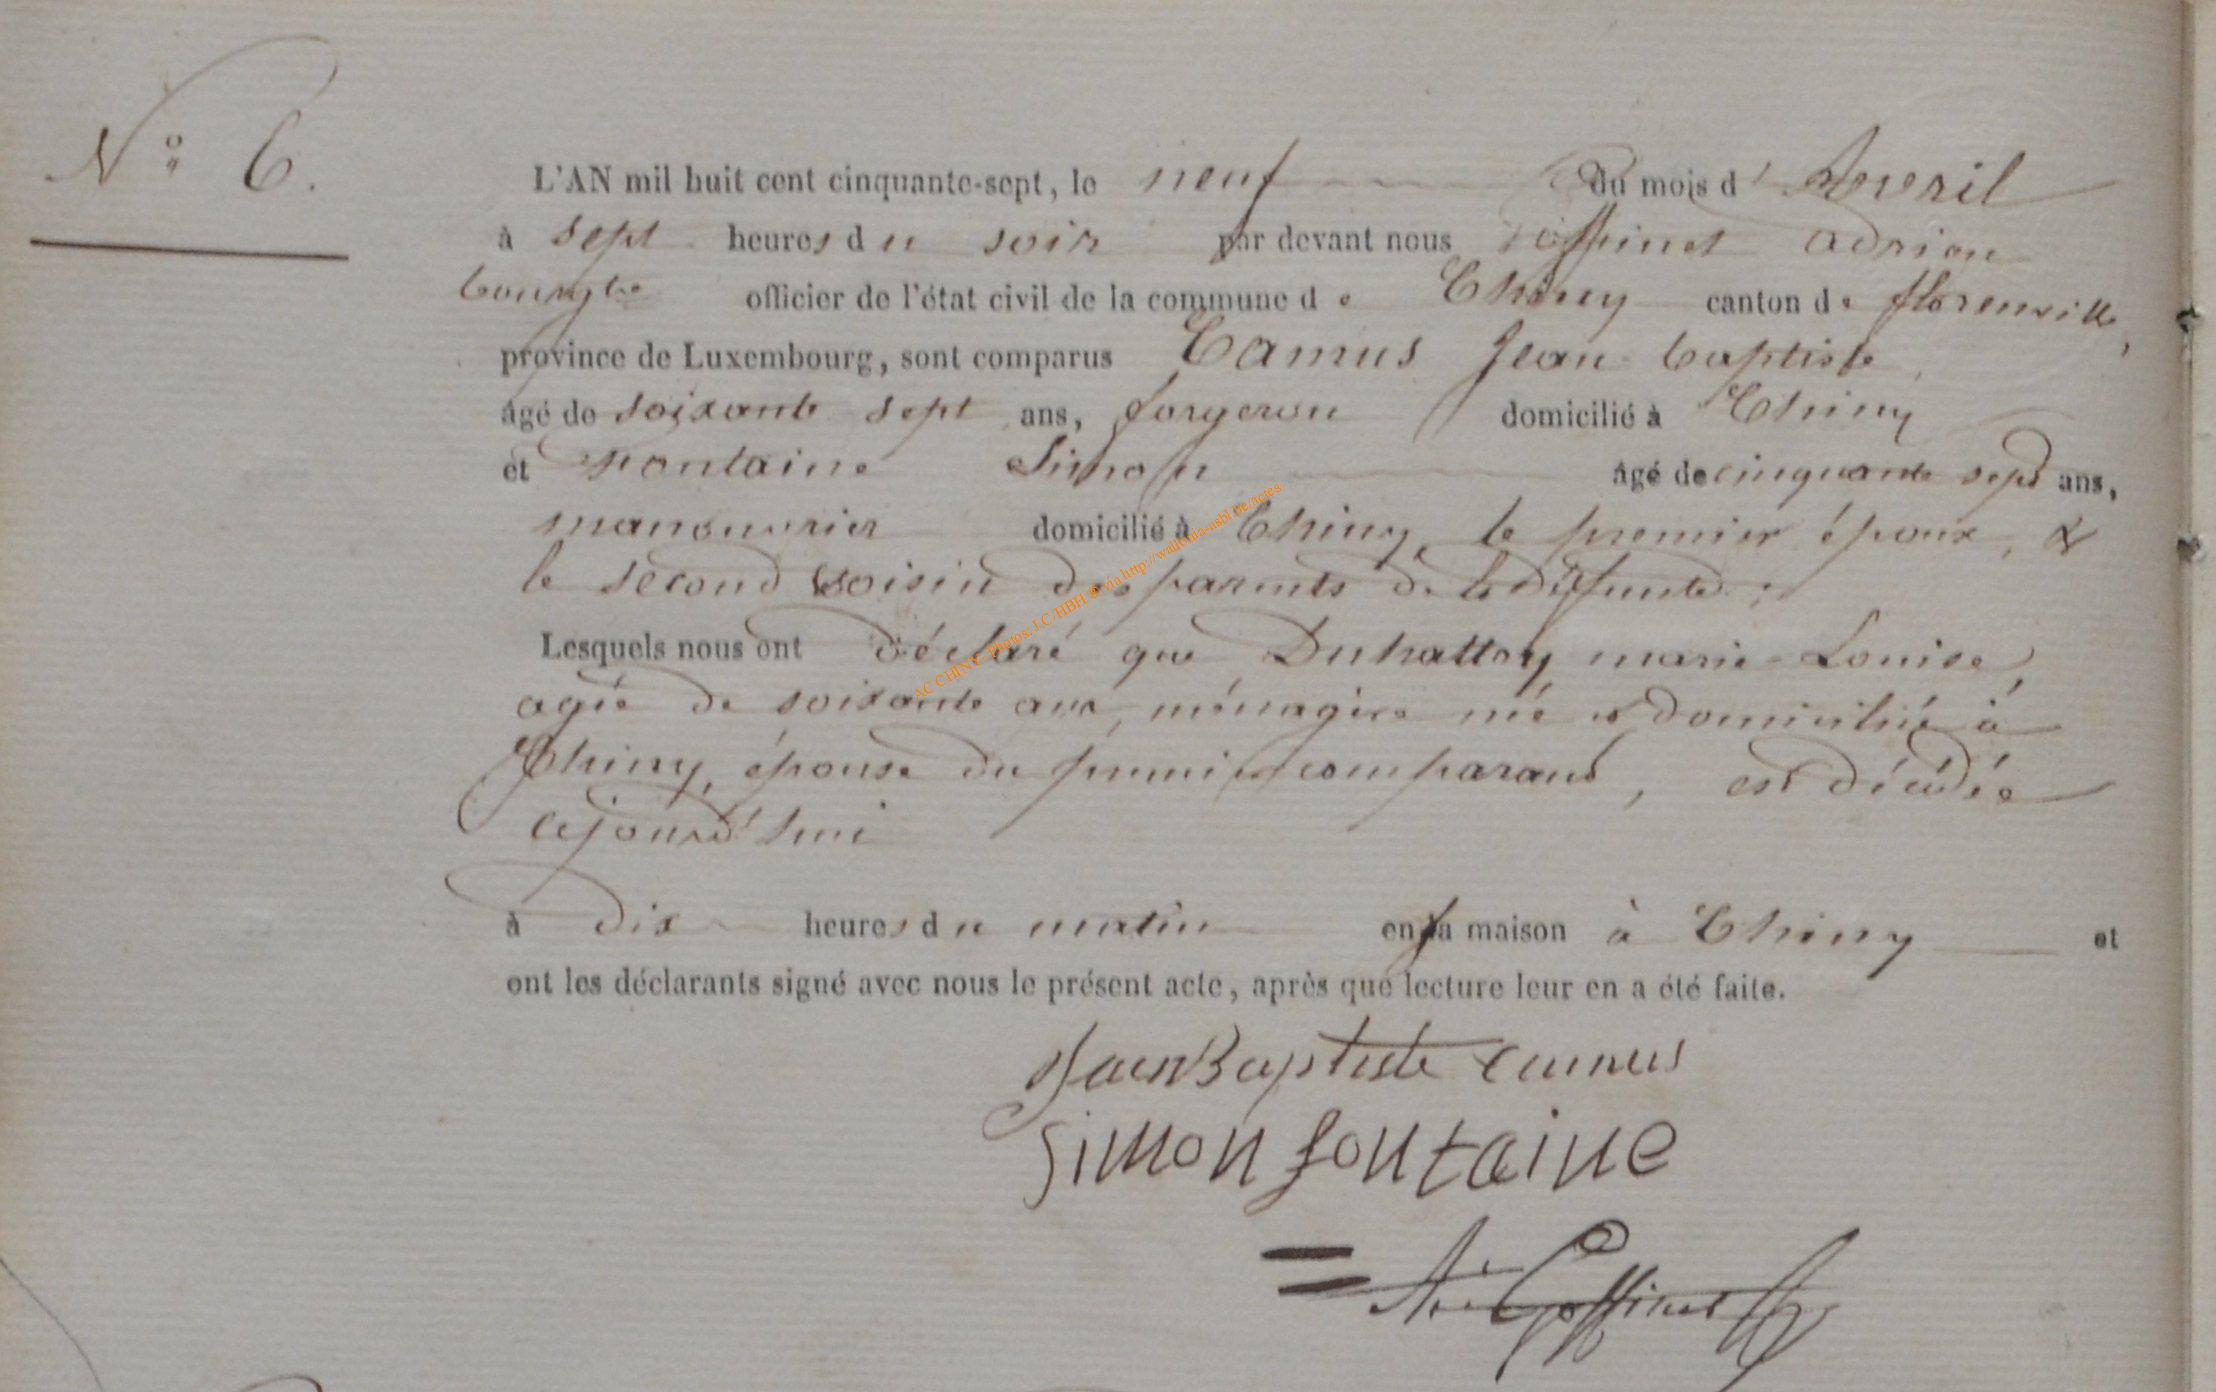 N° 6.
L'AN mil huit cent cinquante-sept, le neuf du mois d'Avril
à sept heures du soir par devant nous Goffinet Adrien
bourgtre officier de l'état civil de la commune de Chiny canton de florenville,
province de Luxembourg, sont comparus Camus Jean-baptiste,
âgé de soixante sept ans, forgeron domicilié à Chiny
et Fontaine Simon âgé de cinquante sept ans,
manouvrier domicilié à Chiny, le premier époux, &
le second voisin des parents de la défunte;
Lesquels nous ont déclaré que Duhattoy marie-Louise,
agée de soixante ans, ménagère née et domiciliée à
Chiny, épouse du premier comparant, est décédée
cejourd'hui
à dix heures du matin en sa maison à Chiny et
ont les déclarants signé avec nous le présent acte, après que lecture leur en a été faite.
Jean Baptiste camus
Simon fontaine
Ad. Goffinet
AC CHINY - Photos: J.C HBH © via http://wallonia-asbl.be/actes